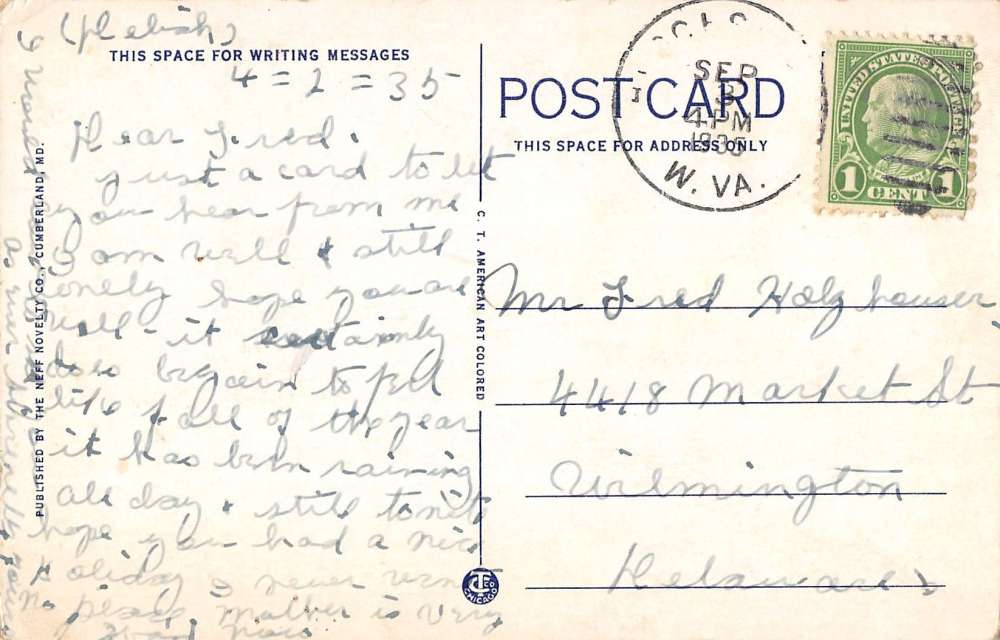 THIS SPACE FOR WRITING MESSAGES
4 = 2 = 35
Dear Fred.
just a card to let
you hear from me
I am well & still
lonely hope you are
well - it certainly
does begain to feel
like fall of the year
it has been raining
all day & still tonite
hope you had a nice
holiday I never went
no place Mother is very
PUBLISHED BY THE NEFF NOVELTY CO., CUMBERLAND, MD.
C. T. AMERICAN ART COLORED
POST CARD
THIS SPACE FOR ADDRESS ONLY
SEP
3
4 PM
1935
W. VA.
UNITED STATES POSTAGE
1 CENT 1
Mr Fred Holzhauser
4418 Market St
Wilmington
Delaware
CT CO
CHICAGO